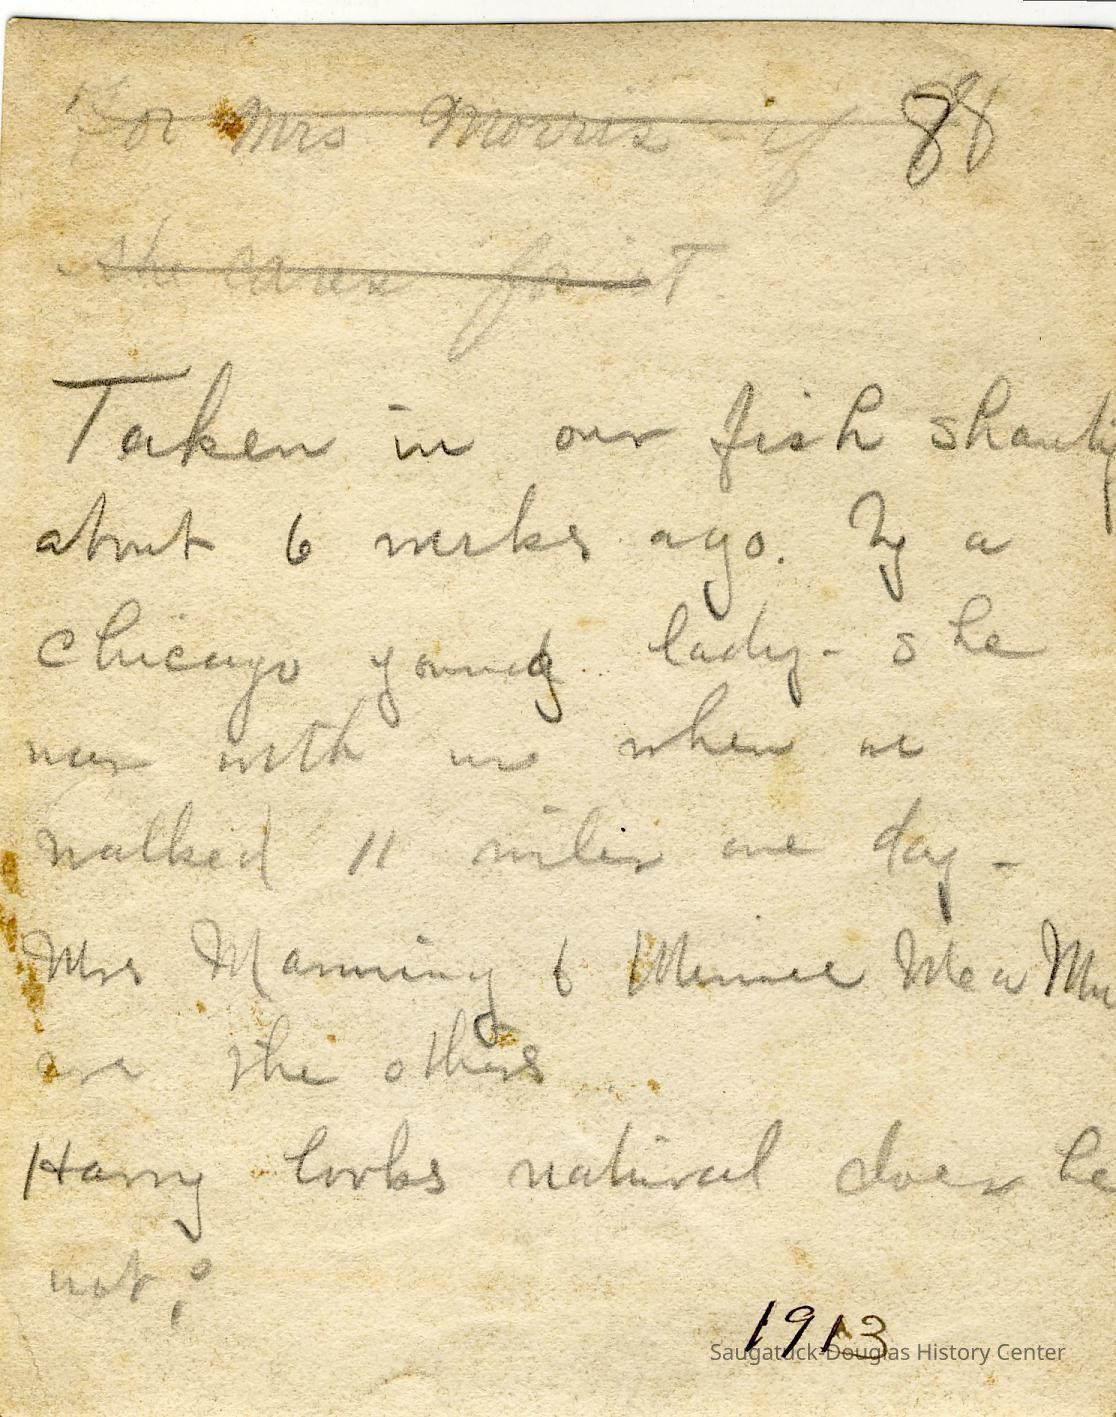 For Mrs Morris - if 88
she cares for it.
Taken in our fish shanty
about 6 weeks ago. By a
Chicago young lady - she
was with us when we
walked 11 miles one day -
Mrs Manning & Minnie
are the others
Harry looks natural does he
not?
1913
Saugatuck-Douglas History Center